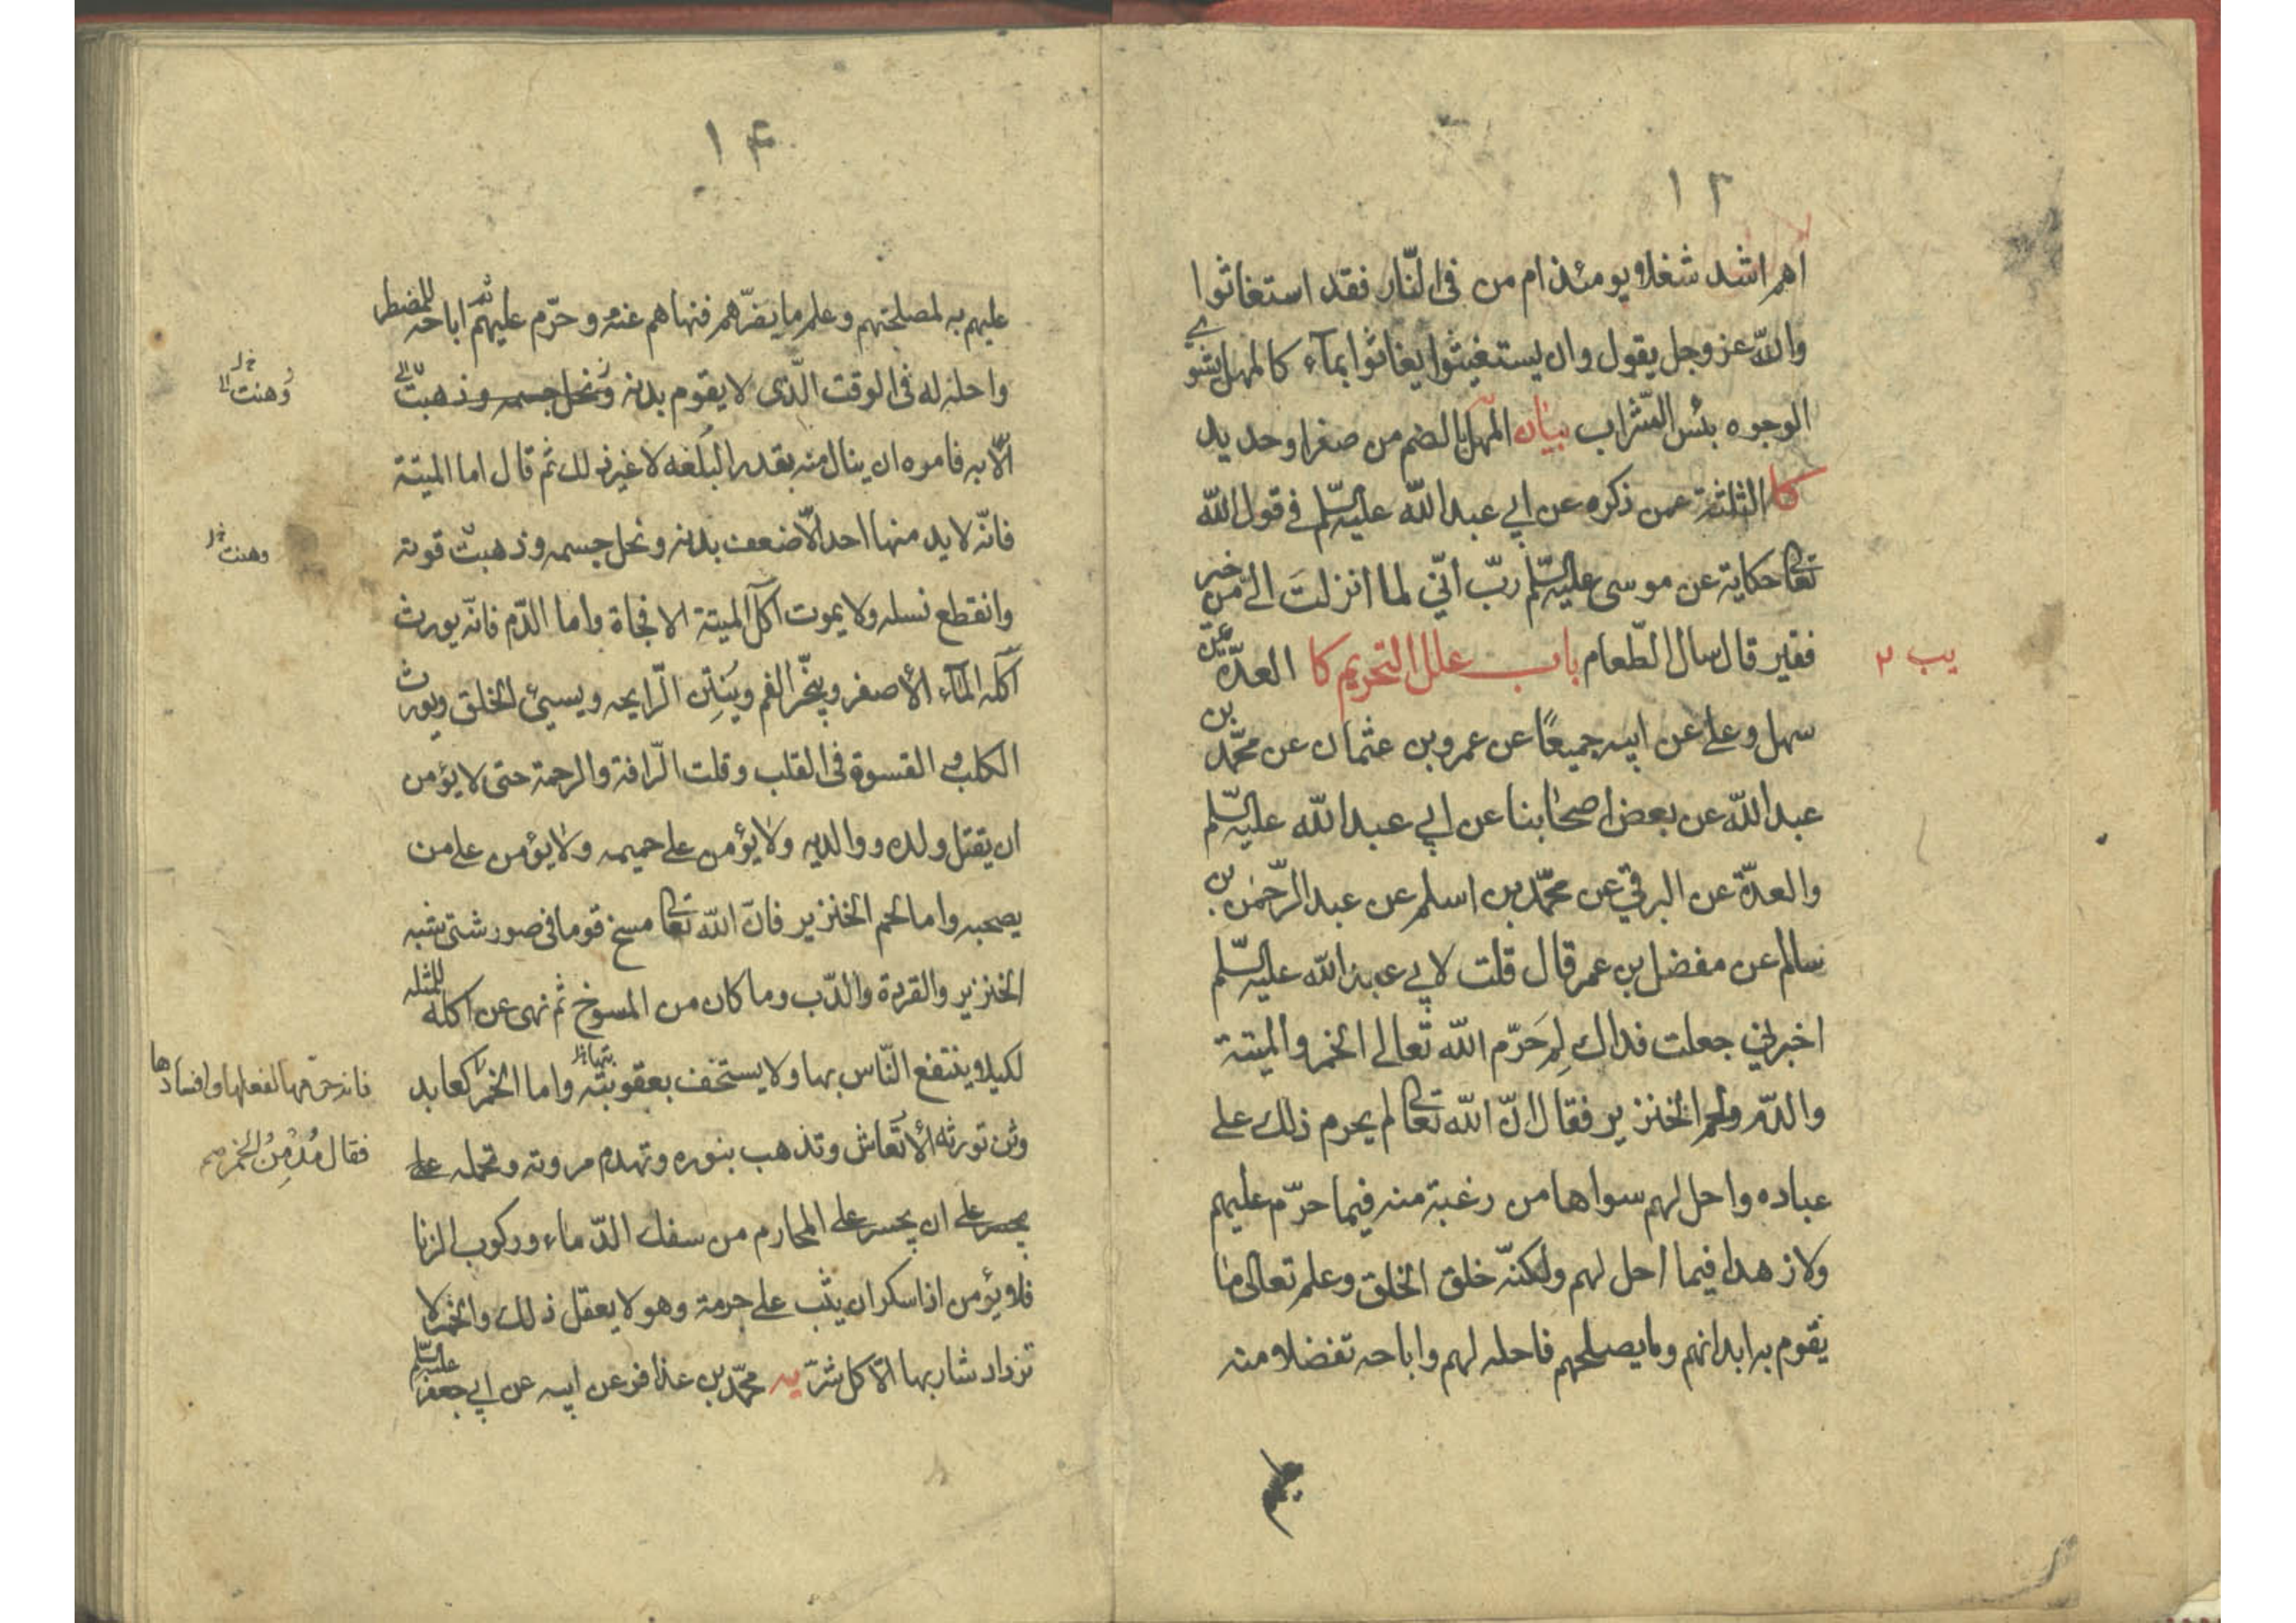 ١٣
اهم اشد شغلا يومئذ ام من فى النّار فقد استغاثوا
والله عز وجل يقول وان يستغيثوا يغاثوا بماء كالمهل يشوي
الوجوه بئس الشراب بيان المهل بالضم من صفر او حديد
كا الثلثة عمن ذكره عن ابي عبد الله عليه السّلم في قول الله
تعالى حكاية عن موسى عليه السّلم ربّ انّي لما انزلتَ الىّ من خير
فقير قال سال الطّعام باب علل التحريم كا العدّة عن
يب ٢
سهل وعلي عن ابيه جميعًا عن عمرو بن عثمان عن محمّد بن
عبد الله عن بعض اصحابنا عن ابي عبد الله عليه السّلم
والعدّة عن البرقي عن محمّد بن اسلم عن عبد الرّحمن بن
سالم عن مفضل بن عمر قال قلت لابي عبد الله عليه السّلم
اخبرني جعلت فداك لِمَ حَرّم الله تعالى الخمر والميتة
والدّم ولحم الخنزير فقال انّ الله تعالى لم يحرم ذلك على
عباده واحل لهم سواها من رغبة منه فيما حرّم عليهم
ولا زهدا فيما احل لهم ولكنّه خلق الخلق وعلم تعالى ما
يقوم به ابدانهم وما يصلحهم فاحله لهم واباحه تفضلا منه
١۴
عليهم به لمصلحتهم وعلم ما يضرّهم فنهاهم عنه وحرّم عليهم ثم اباحه للمضطر
واحله له فى الوقت الّذى لا يقوم بدنه ونحل جسمه وذهبت
وَهنت خ ل
الّا به فامره ان ينال منه بقدر البلغه لا غير ذلك ثم قال اما الميتة
فانّه لا يد منها احد الّا ضعف بدنه ونحل جسمه وذهبت قوته
وهنت خ ل
وانقطع نسله ولا يموت آكل الميتة الا فجاة واما الدّم فانّه يورث
آكله المآء الأصفر ويبخّر الفم وينتن الرّايحه ويسيئ الخلق ويورث
الكلب و القسوة فى القلب وقلت الرّافة والرحمة حتى لا يؤمن
ان يقتل ولده ووالديه ولا يؤمن على حميمه ولا يؤمن على من
يصحبه واما لحم الخنزير فانّ الله تعالى مسخ قوما فى صور شتى شبه
الخنزير والقردة والدّب وما كان من المسوخ ثم نهى عن اكله للمثله
لكيلا ينتفع النّاس بها ولا يستخف بعقوبته واما الخمر كعابد
فانه حرّمها لفعلها وافسادها
وثن تورثه الأرتعاش وتذهب بنوره وتهدم مروته وتحمله على
فقال مُدْمِنُ الخمر
يجسر على ان يجسر على المحارم من سفك الدّماء وركوب الزنا
فلا يؤمن اذا سكر ان يثب على حرمة وهو لا يعقل ذلك والخمر لا
تزداد شاربها الّا كل شرّ يه محمّد بن عذافر عن ابيه عن ابي جعفر عليه السّلم